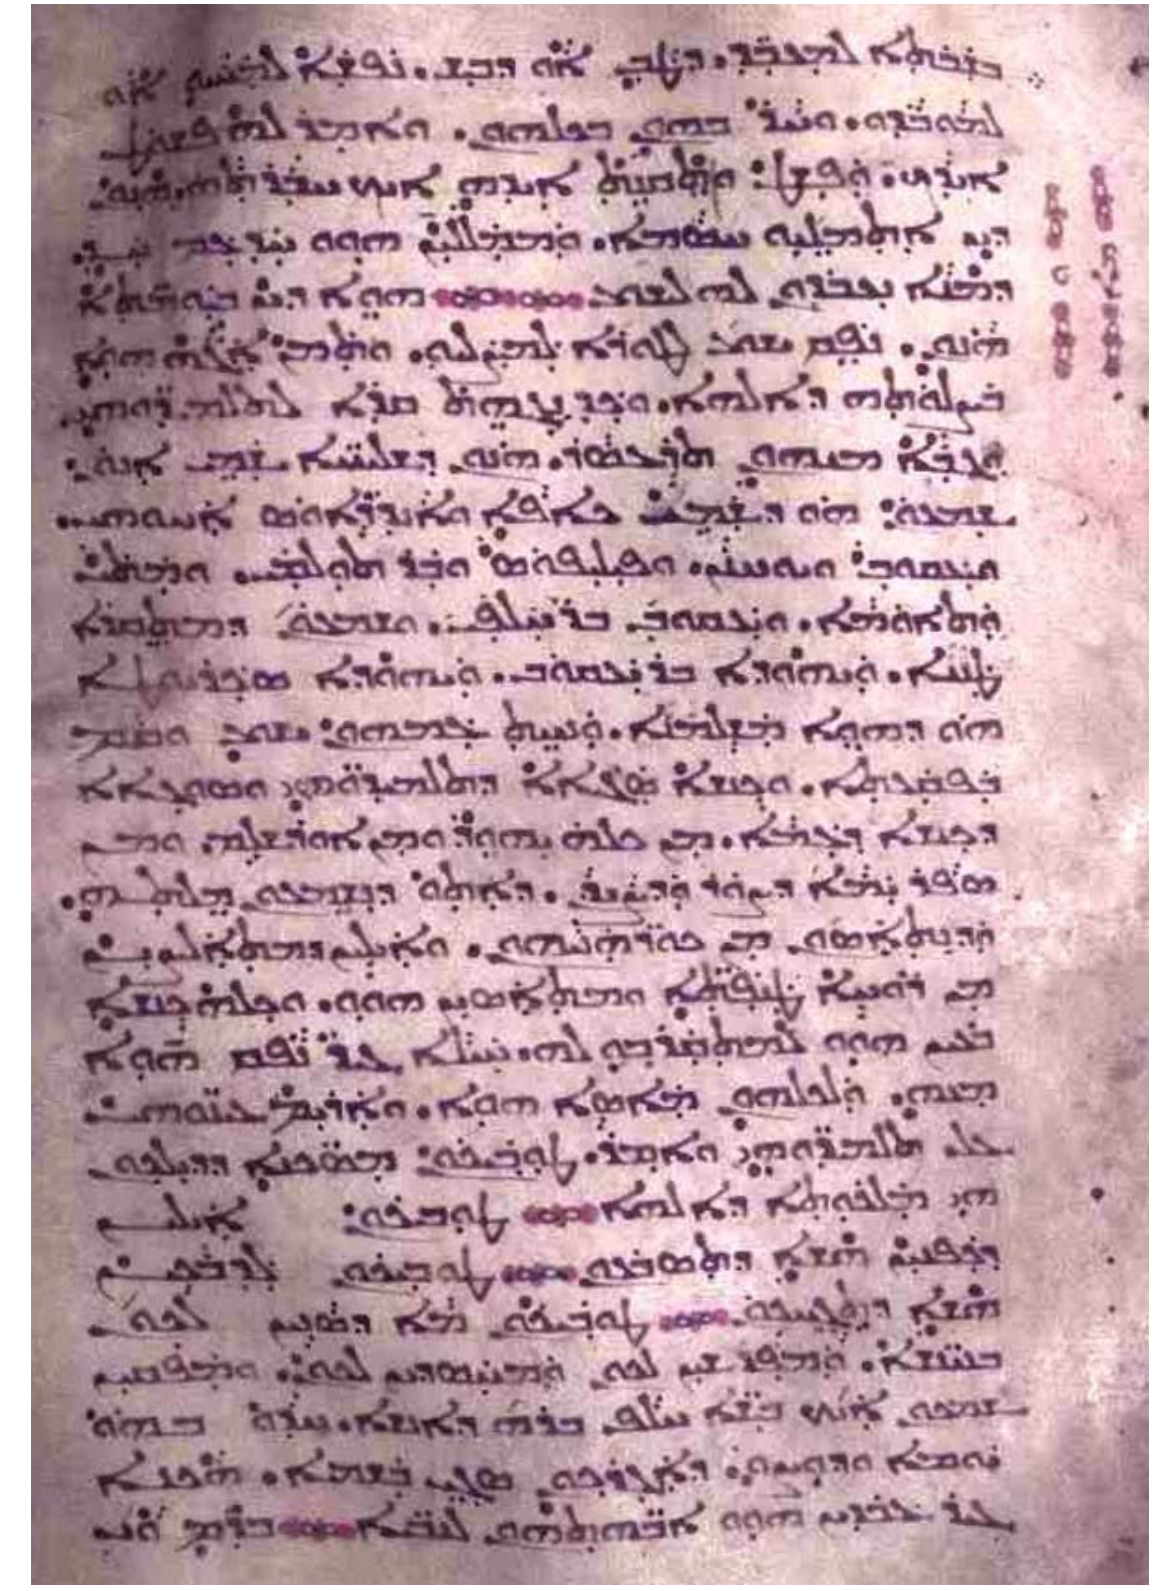 ܒܫܒܬܐ ܠܡܥܒܕ. ܕܛܒ ܐܘ ܕܒܝܫ. ܢܦܫܐ ܠܡܚܝܘ ܐܘ
ܠܡܘܒܕܘ. ܘܚܪ ܒܗܘܢ ܒܟܠܗܘܢ. ܘܐܡܪ ܠܗ ܦܫܘܛ
ܐܝܕܟ. ܘܦܫܛ ܘܬܩܢܬ ܐܝܕܗ ܐܝܟ ܚܒܪܬܗ. ܗܢܘܢ
ܕܝܢ ܐܬܡܠܝܘ ܚܣܡܐ. ܘܡܡܠܠܝܢ ܗܘܘ ܚܕ ܥܡ ܚܕ.
ܕܡܢܐ ܢܥܒܕܘܢ ܠܗ ܠܝܫܘܥ ܗܘܐ ܕܝܢ ܒܝܘܡܬܐ
ܗܢܘܢ. ܢܦܩ ܝܫܘܥ ܠܛܘܪܐ ܠܡܨܠܝܘ. ܘܬܡܢ ܐܓܗ ܗܘܐ
ܒܨܠܘܬܗ ܕܐܠܗܐ. ܘܟܕ ܢܓܗܬ ܩܪܐ ܠܬܠܡܝܕܘܗܝ.
ܘܓܒܐ ܡܢܗܘܢ ܬܪܥܣܪ. ܗܢܘܢ ܕܫܠܝܚܐ ܫܡܝ ܐܢܘܢ.
ܫܡܥܘܢ ܗܘ ܕܫܡܗ ܟܐܦܐ ܘܐܢܕܪܐܘܣ ܐܚܘܗܝ.
ܘܝܥܩܘܒ ܘܝܘܚܢܢ. ܘܦܝܠܝܦܘܣ ܘܒܪ ܬܘܠܡܝ. ܘܡܬܝ
ܘܬܐܘܡܐ. ܘܝܥܩܘܒ ܒܪ ܚܠܦܝ. ܘܫܡܥܘܢ ܕܡܬܩܪܐ
ܛܢܢܐ. ܘܝܗܘܕܐ ܒܪ ܝܥܩܘܒ. ܘܝܗܘܕܐ ܣܟܪܝܘܛܐ
ܗܘ ܕܗܘܐ ܡܫܠܡܢܐ. ܘܢܚܬ ܥܡܗܘܢ ܝܫܘܥ ܘܩܡ
ܒܦܩܥܬܐ. ܘܟܢܫܐ ܣܓܝܐܐ ܕܬܠܡܝܕܘܗܝ ܘܣܘܓܐܐ
ܕܟܢܫܐ ܕܥܡܐ. ܡܢ ܟܠܗ ܝܗܘܕ ܘܡܢ ܐܘܪܫܠܡ ܘܡܢ
ܣܦܪ ܝܡܐ ܕܨܘܪ ܘܕܨܝܕܢ. ܕܐܬܘ ܕܢܫܡܥܘܢ ܡܠܬܗ.
ܘܕܢܬܐܣܘܢ ܡܢ ܟܘܪܗܢܝܗܘܢ. ܘܐܝܠܝܢ ܕܡܬܐܠܨܝܢ
ܡܢ ܪܘܚܐ ܛܢܦܬܐ ܘܡܬܐܣܝܢ ܗܘܘ. ܘܟܠܗ ܟܢܫܐ
ܒܥܝܢ ܗܘܘ ܠܡܬܩܪܒܘ ܠܗ. ܚܝܠܐ ܓܝܪ ܢܦܩ ܗܘܐ
ܡܢܗ. ܘܠܟܠܗܘܢ ܡܐܣܐ ܗܘܐ. ܘܐܪܝܡ ܥܝܢܘܗܝ
ܥܠ ܬܠܡܝܕܘܗܝ ܘܐܡܪ. ܛܘܒܝܟܘܢ ܡܣܟܢܐ ܕܕܝܠܟܘܢ
ܗܝ ܡܠܟܘܬܐ ܕܐܠܗܐ ܛܘܒܝܟܘܢ ܐܝܠܝܢ
ܕܟܦܢܝܢ ܗܫܐ ܕܬܣܒܥܘܢ ܛܘܒܝܟܘܢ ܠܕܒܟܝܢ
ܗܫܐ ܕܬܓܚܟܘܢ ܛܘܒܝܟܘܢ ܡܐ ܕܣܢܝܢ ܠܟܘܢ
ܒܢܝܢܫܐ. ܘܡܦܪܫܝܢ ܠܟܘܢ ܘܡܚܣܕܝܢ ܠܟܘܢ. ܘܡܦܩܝܢ
ܫܡܟܘܢ ܐܝܟ ܒܝܫܐ ܚܠܦ ܒܪܗ ܕܐܢܫܐ. ܚܕܘ ܒܗܘ
ܝܘܡܐ ܘܕܘܨܘ. ܕܐܓܪܟܘܢ ܣܓܝ ܒܫܡܝܐ. ܗܟܢܐ
ܓܝܪ ܥܒܕܝܢ ܗܘܘ ܐܒܗܬܗܘܢ ܠܢܒܝܐ ܒܪܡ ܘܝ